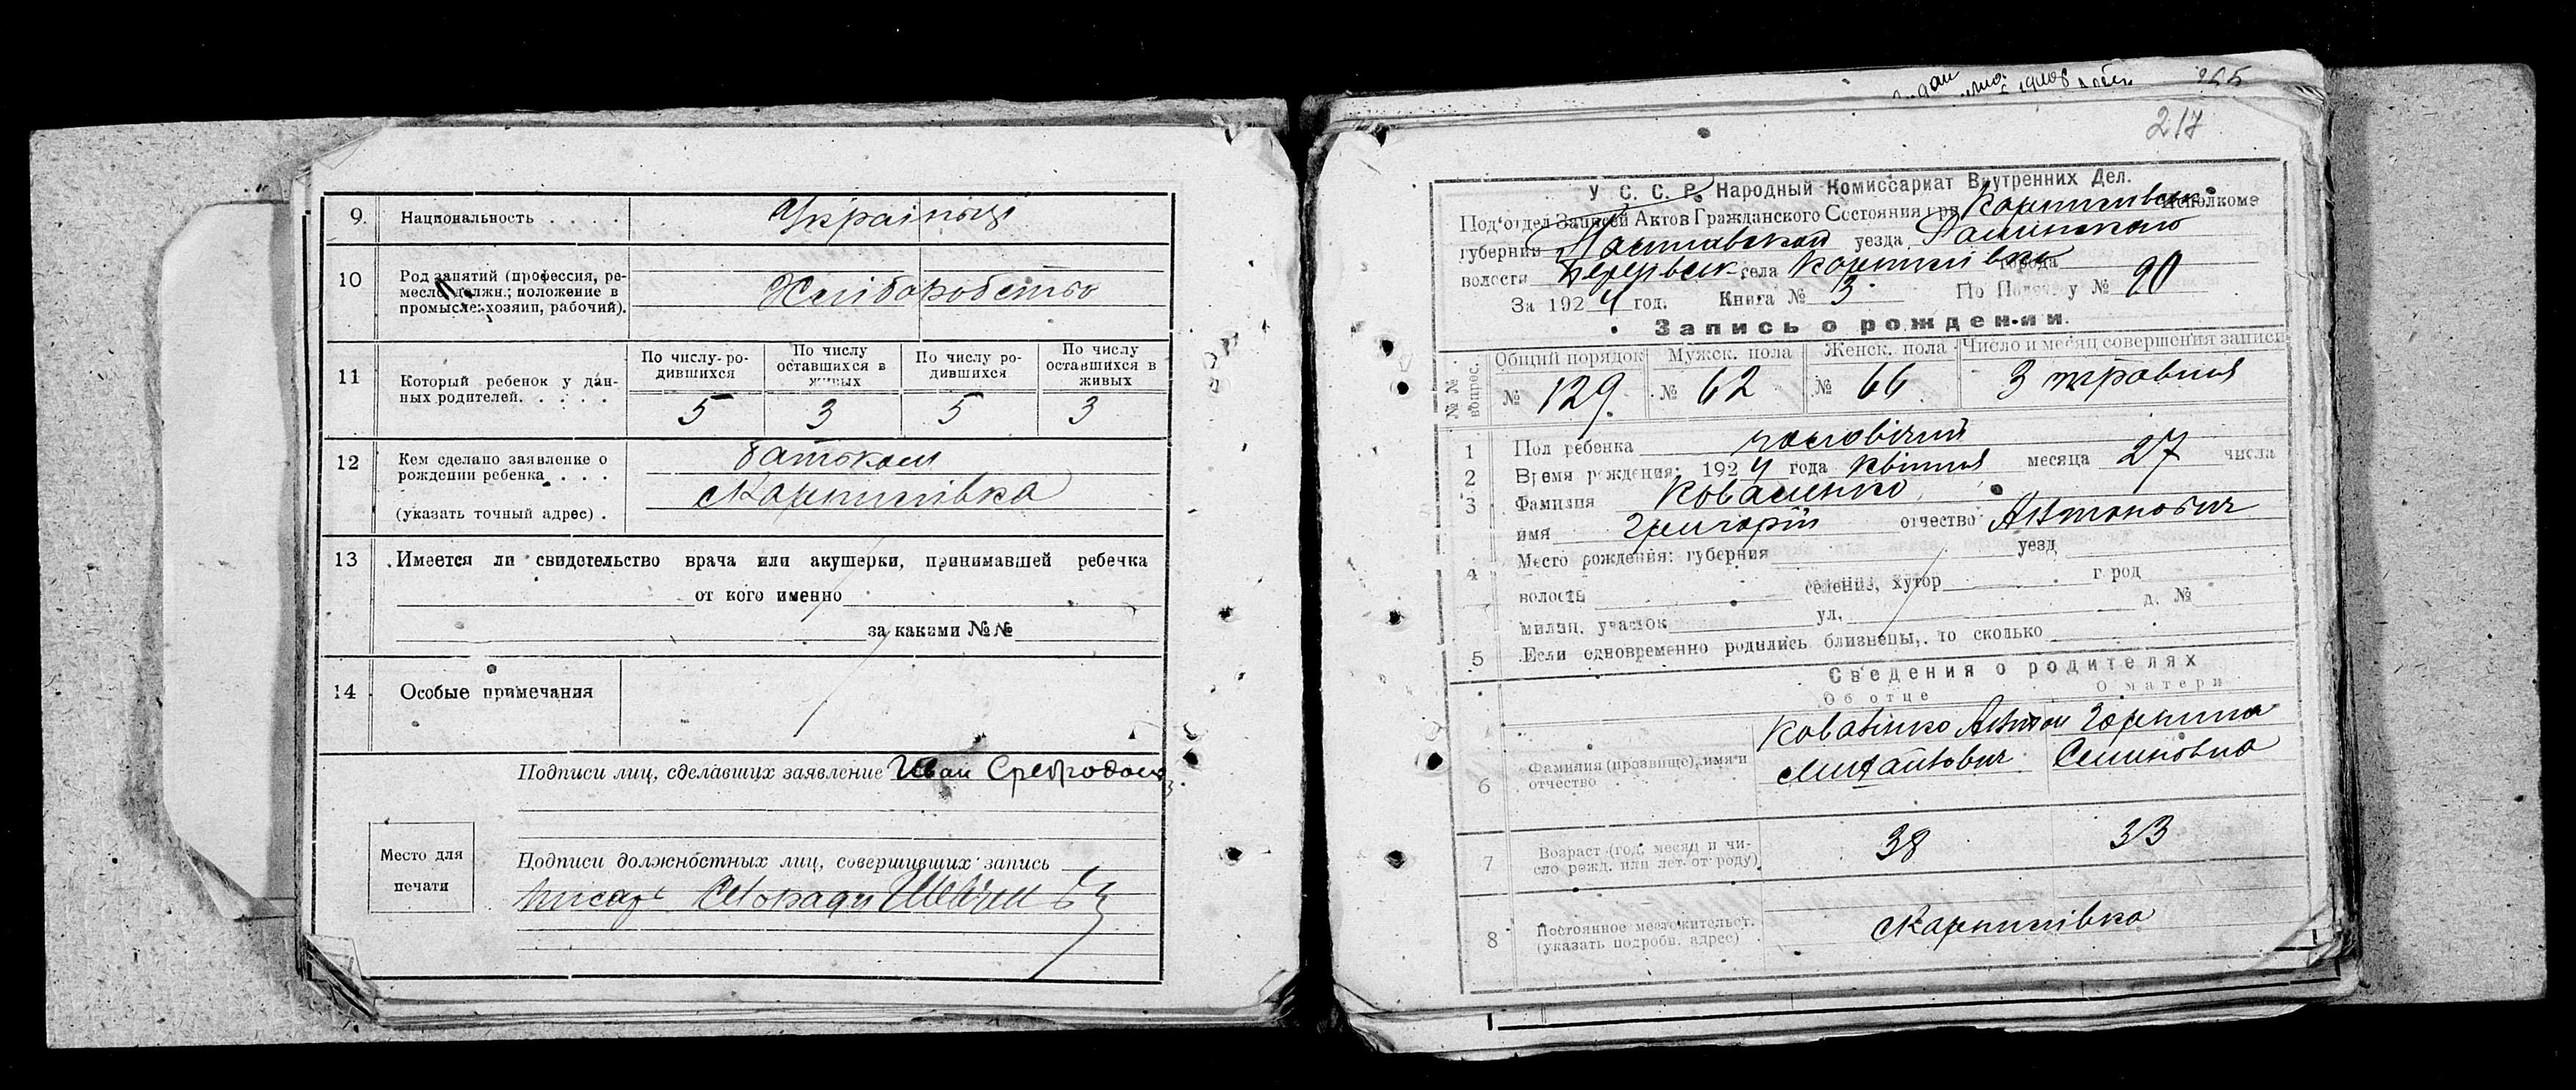 9. Национальность . . . . Українці
10 Род занятий (профессия, ре-
месло, должн.; положение в
промысле: хозяин, рабочий).
Хліборобство
11 Который ребенок у дан-
ных родителей. . . . .
По числу ро-
дившихся
По числу
оставшихся в
живых
По числу ро-
дившихся
По числу
оставшихся в
живых
5 3 5 3
12 Кем сделано заявление о
рождении ребенка . . . .
(указать точный адрес) .
батьком
с Карпилівка
13 Имеется ли свидетельство врача или акушерки, принимавшей ребенка
от кого именно
за какими №№
14 Особые примечания
Подписи лиц, сделавших заявление Иван
Место для
печати
Подписи должностных лиц, совершивших запись
писарь
217
У С. С. Р. Народный Комиссариат Внутренних Дел.
Под'отдел Записей Актов Гражданского Состояния при Исполкоме
губернии Полтавской уезда
волости села Карпилівки города
За 1924 год. Книга № 3 По Порядку № 90
Запись о рождении.
№№ вопрос.
Общий порядок Мужск. пола Женск. пола Число и месяц совершения записи
№ 129. № 62 № 66 3 травня
1 Пол ребенка чоловічий
2 Время рождения: 1924 года квітня месяца 27 числа
3 Фамилия Коваленко
имя Григорій отчество Антонович
4 Место рождения: губерния уезд
волость селение, хутор город
милиц. участок ул. д. №
5 Если одновременно родились близнецы, то сколько
Сведения о родителях
Об отце О матери
6 Фамилия (прозвище), имя и
отчество
Коваленко Антон Горпина
Михайлович Семеновна
7 Возраст (год, месяц и чи-
сло рожд. или лет от роду)
38 33
8 Постоянное местожительст.
(указать подробн. адрес)
с Карпилівка